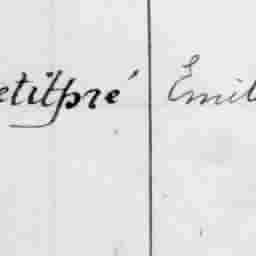 etitpré Émil